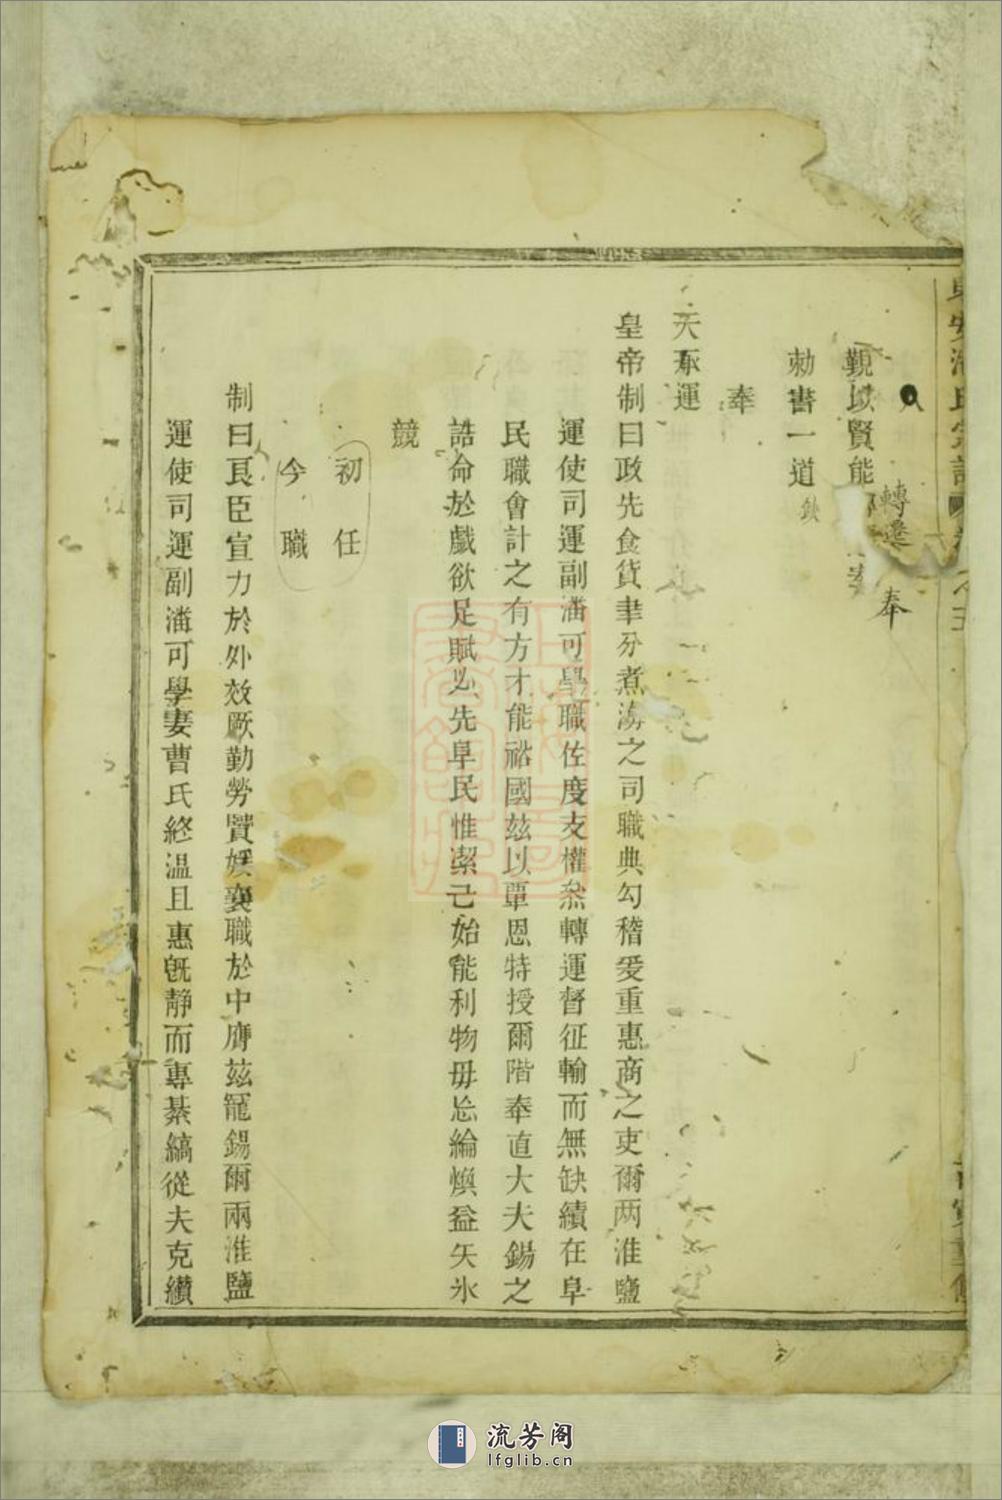 覲以賢能
轉遷 奉
勅書一道
奉
天承運
皇帝制曰政先食貨聿分煮海之司職典勾稽爰重惠商之吏爾两淮鹽
運使司運副潘可學職佐度支權叅轉運督征輸而無缺績在阜
民職會計之有方才能裕國兹以覃恩特授爾階奉直大夫錫之
誥命於戲欲足賦必先阜民惟潔己始能利物毋忘綸焕益矢氷
競
初任
今職
制曰良臣宣力於外效厥勤勞賢媛襄職於中膺兹寵錫爾兩淮鹽
運使司運副潘可學妻曹氏終温且惠旣静而專綦縞從夫克纘
流芳阁
lfglib.cn